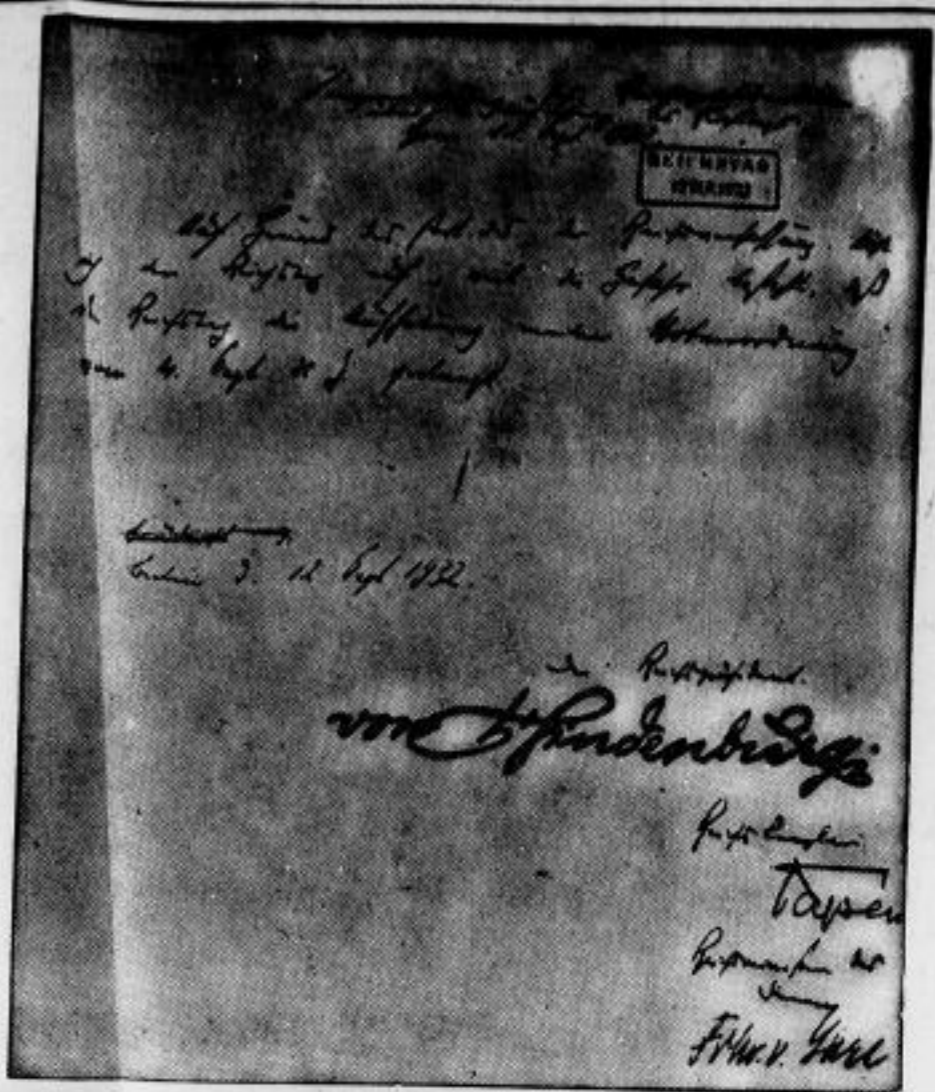 REICHSTAG
Auf Grund des Art. 25 der Reichsverfassung löse
ich den Reichstag auf, weil die Gefahr besteht, daß
der Reichstag die Aufhebung meiner Notverordnung
vom 4. Sept. d. J. verlangt.
Berlin d. 12 Sept 1932.
Der Reichspräsident.
von Hindenburg
Reichskanzler
Papen
Reichsminister des
Innern
Frhr. v. Gayl